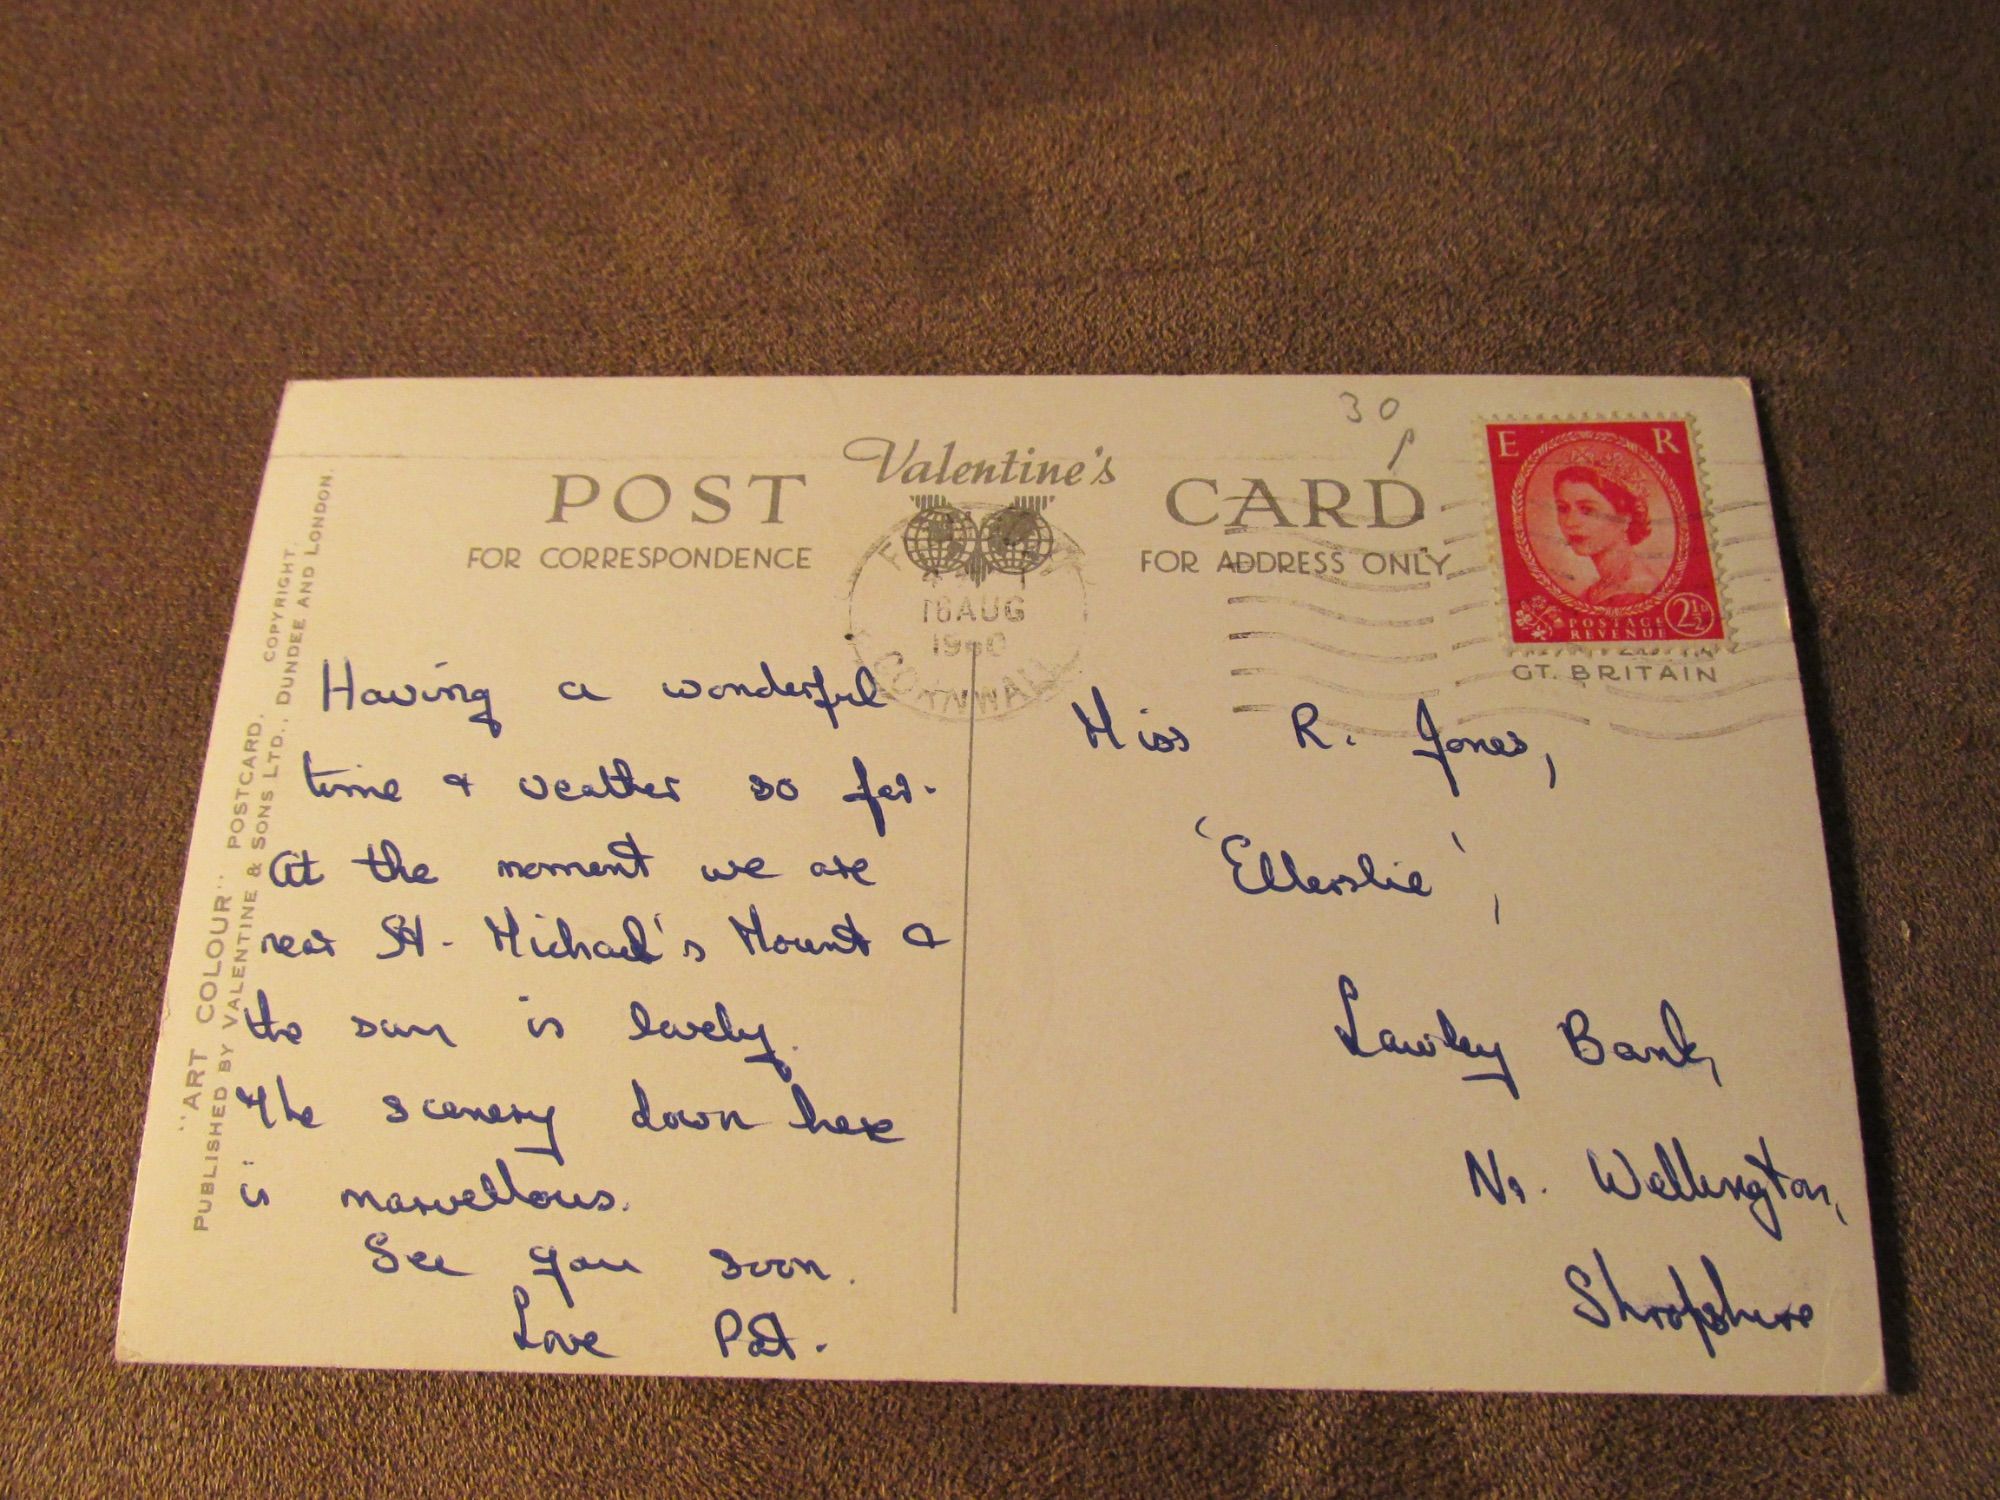 30
P
Valentine's
POST CARD
FOR CORRESPONDENCE
FOR ADDRESS ONLY
E R
POSTAGE
REVENUE
2½D
GT. BRITAIN
AUG
1960
CORNWALL
"ART COLOUR" POSTCARD. COPYRIGHT.
PUBLISHED BY VALENTINE & SONS LTD., DUNDEE AND LONDON.
Having a wonderful
time & weather so far.
At the moment we are
near St. Michael's Mount &
the sun is lovely.
The scenery down here
is marvellous.
See you soon.
Love Pat.
Miss R. Jones,
'Ellerslie',
Lawley Bank,
Nr. Wellington,
Shropshire